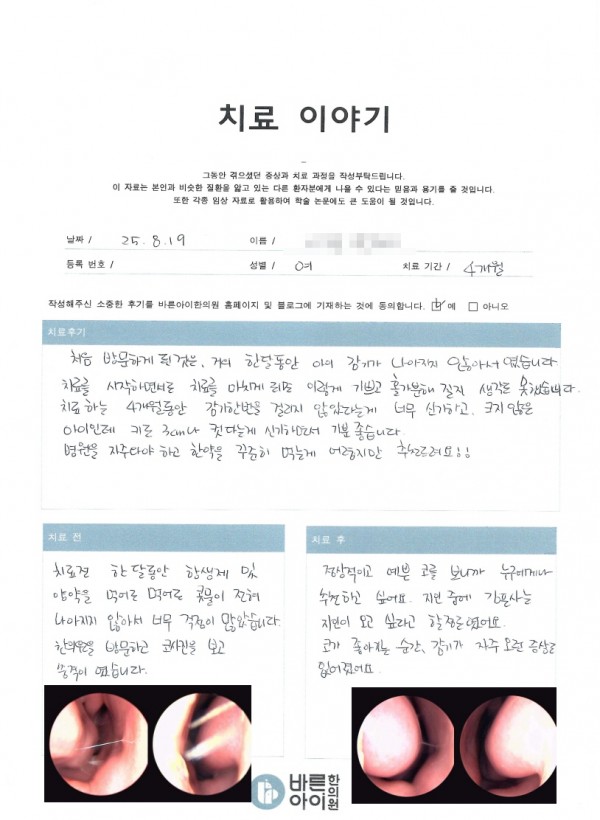 치료 이야기
그동안 겪으셨던 증상과 치료 과정을 작성부탁드립니다.
이 자료는 본인과 비슷한 질환을 앓고 있는 다른 환자분에게 나을 수 있다는 믿음과 용기를 줄 것입니다.
또한 각종 임상 자료로 활용하여 학술 논문에도 큰 도움이 될 것입니다.
날짜 / 25. 8. 19 이름 /
등록 번호 / 성별 / 여 치료 기간 / 4개월
작성해주신 소중한 후기를 바른아이한의원 홈페이지 및 블로그에 기재하는 것에 동의합니다. 예 아니오
치료후기
처음 방문하게 된것은, 거의 한달동안 아이 감기가 나아지지 않아서 였습니다.
치료를 시작하면서로 치료를 마치게 되도 이렇게 기쁘고 홀가분해 질지 생각도 못했습니다.
치료하는 4개월동안 감기한번을 걸리지 않았다는게 너무 신기하고, 크지 않은
아이인데 키도 3cm나 컷다는게 신기하면서 기분 좋습니다
병원을 자주다야 하고 한약을 꾸준히 먹는게 어렵지만 추천드려요!!
치료 전
치료전 한달동안 항생제 및
양약을 먹어도 먹어도 콧물이 전혀
나아지지 않아서 너무 걱정이 많았습니다.
한의원을 방문하고 코사진을 보고
충격이 였습니다.
치료 후
정상적이고 예쁜 코를 보니까 누구에게나
추천하고 싶어요. 지인 중에 간호사는
지인이 오고 싶다고 할정도였어요.
코가 좋아지는 순간, 감기가 자주 오던 증상도
없어졌어요.
바른
아이
한의원